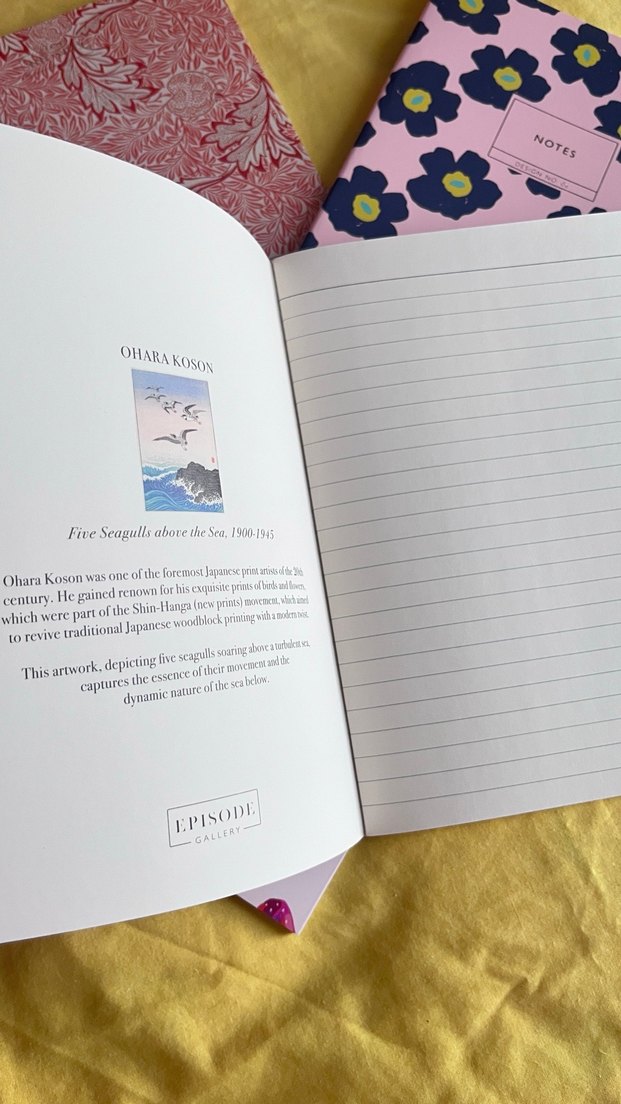 NOTES
DESIGN NO.
OHARA KOSON
Five Seagulls above the Sea, 1900-1945
Ohara Koson was one of the foremost Japanese print artists of the 20th
century. He gained renown for his exquisite prints of birds and flowers,
which were part of the Shin-Hanga (new prints) movement, which aimed
to revive traditional Japanese woodblock printing with a modern twist.
This artwork, depicting five seagulls soaring above a turbulent sea,
captures the essence of their movement and the
dynamic nature of the sea below.
EPISODE
GALLERY